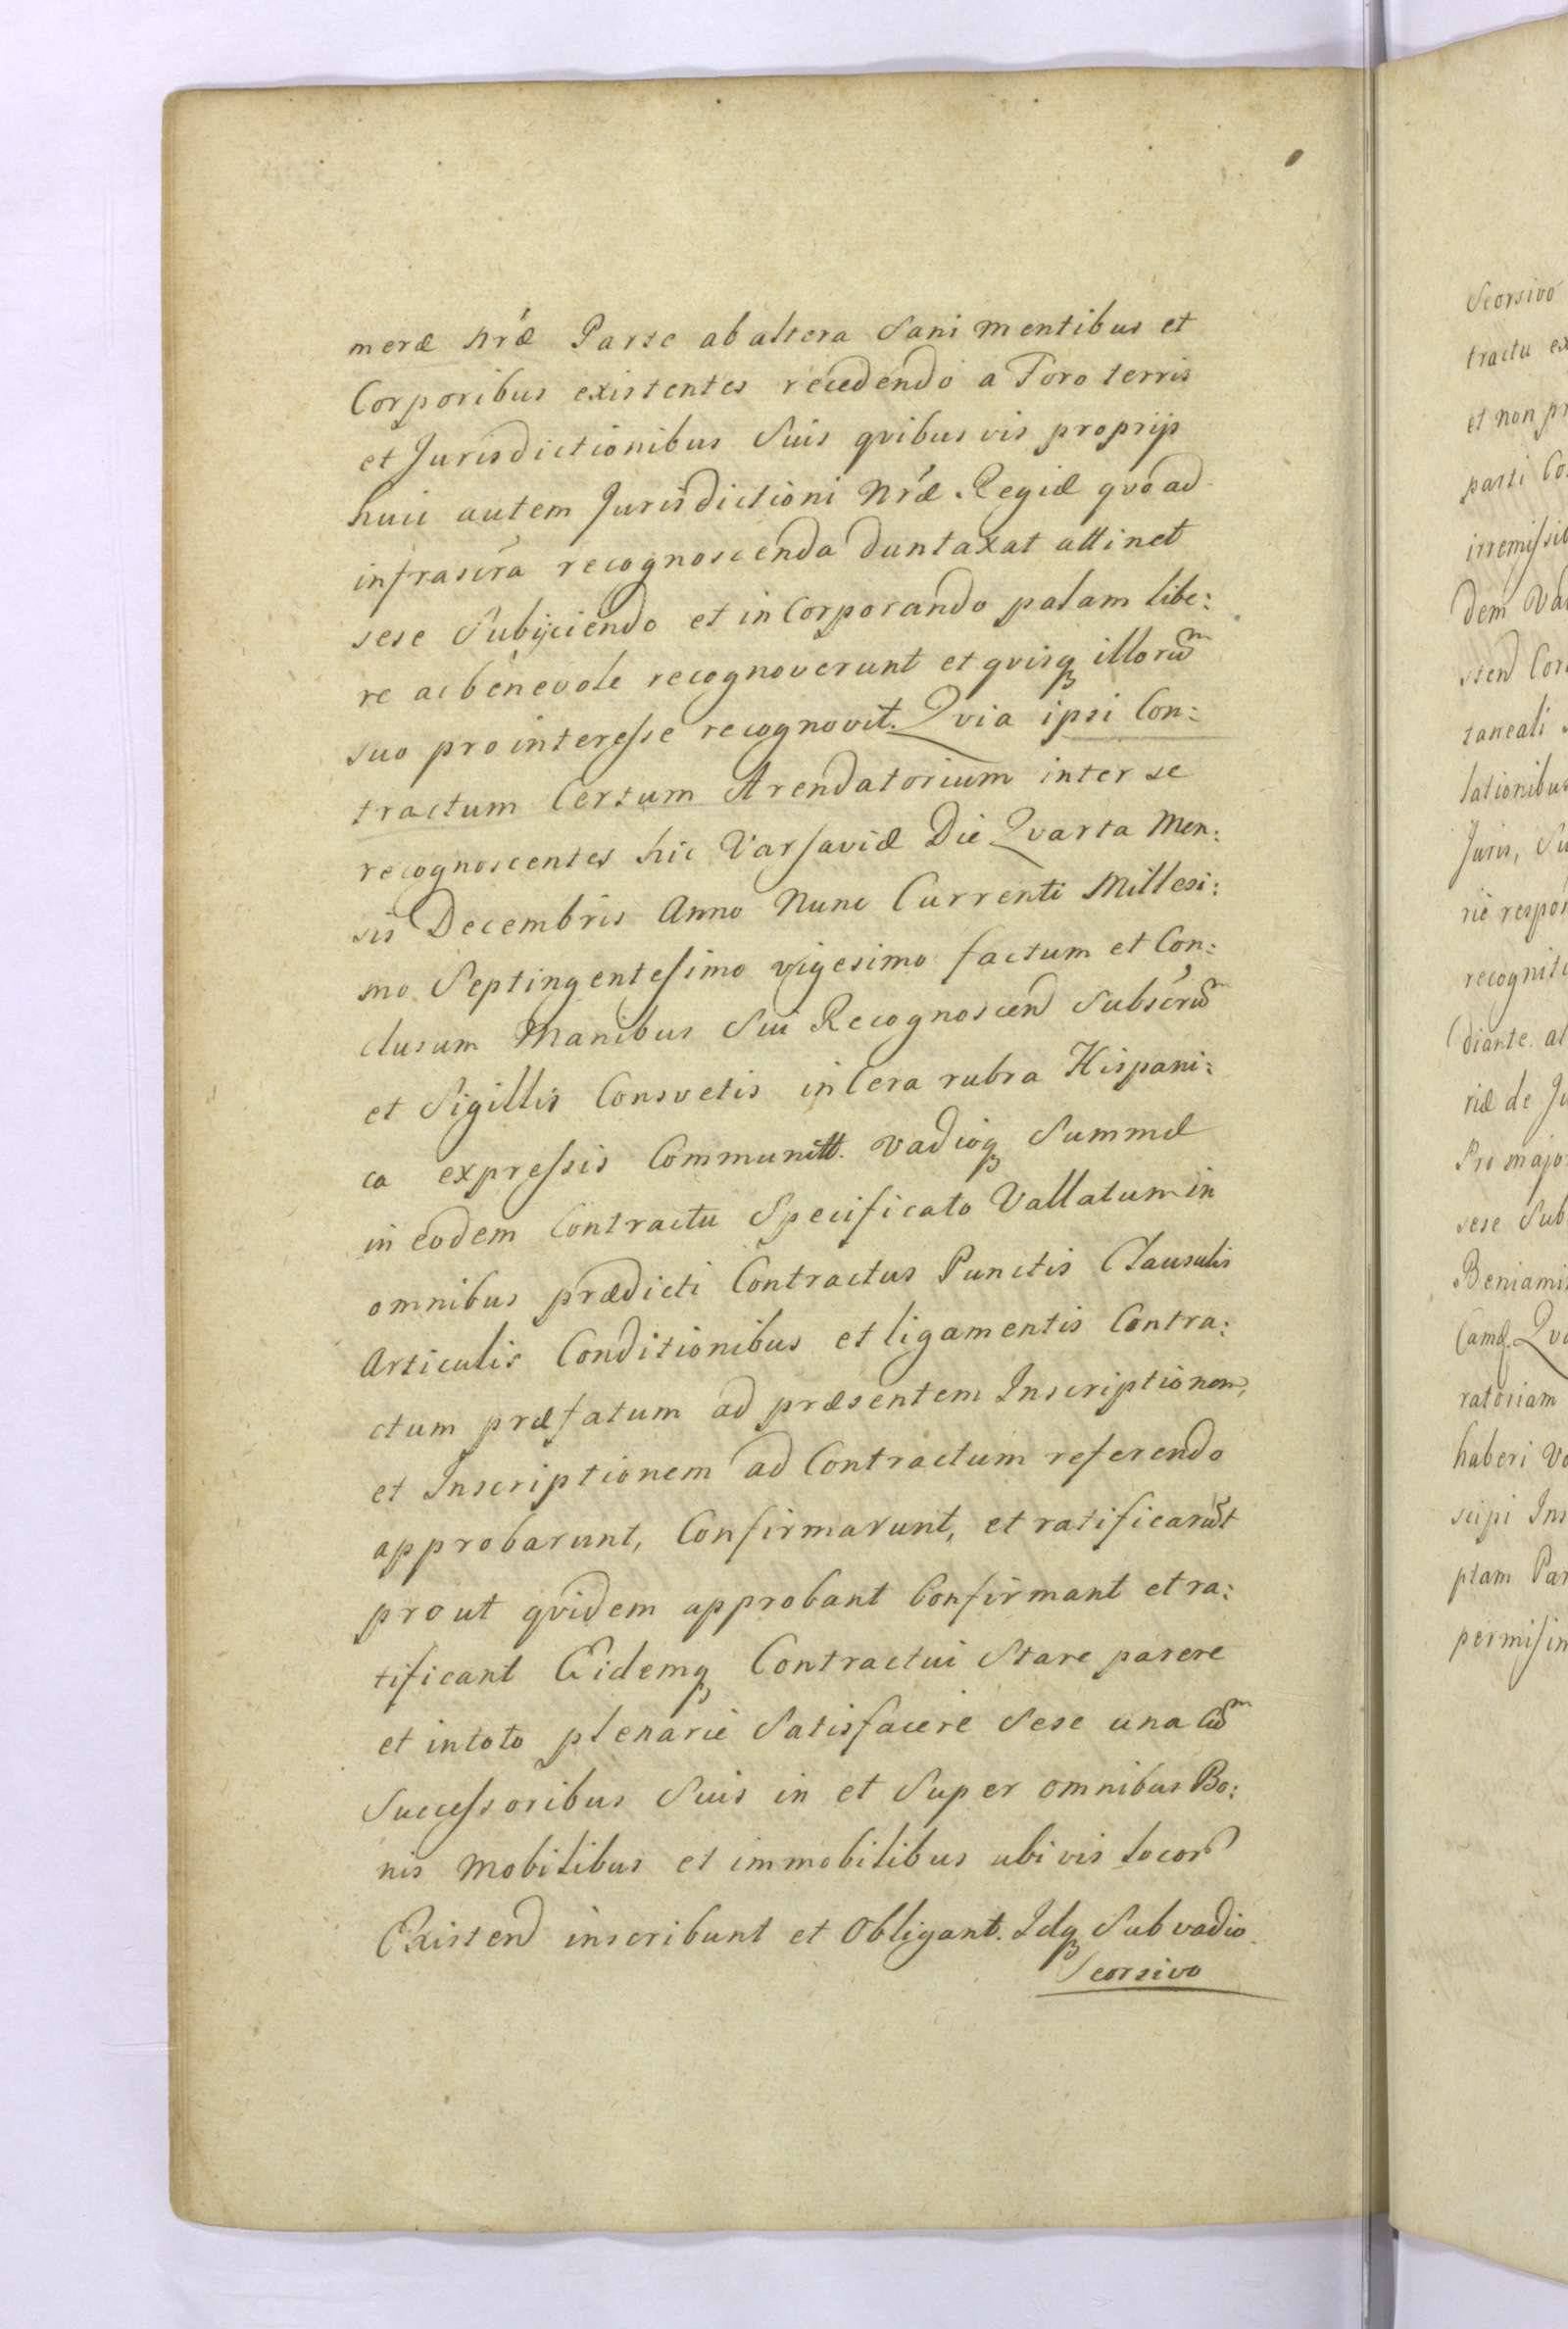 meræ nræ Parte ab altera Sani mentibus et
Corporibus existentes recedendo a Foro terris
et Jurisdictionibus Suis qvibus vis proprijs
huic autem Jurisdictioni Nræ Regiæ qvo ad
infrascra recognoscenda duntaxat attinet
sese Subijciendo et in Corporando palam libe:
re ac benevole recognoverunt et qvisq illorum
suo pro interesse recognovit. Qvia ipsi Con:
tractum Certum Arendatorium inter se
recognoscentes hic Varsaviæ Die Qvarta Men:
sis Decembris Anno Nunc Currenti Millesi:
mo Septingentesimo vigesimo factum et Con:
clusum Manibus Sui Recognoscen Subscrum
et Sigillis Consvetis in Cera rubra Hispani:
ca expressis Communitt. vadioq Summæ
in eodem Contractu Specificato Vallatum in
omnibus prædicti Contractus Punctis Clausulis
Articulis Conditionibus et ligamentis Contra:
ctum præfatum ad præsentem Inscriptionem,
et Inscriptionem ad Contractum referendo
approbarunt, Confirmarunt, et ratificarut
prout qvidem approbant Confirmant et ra:
tificant Eidemq Contractui Stare parere
et in toto plenarie Satisfacere Sese una Cum
Successoribus Suis in et Super omnibus Bo:
nis Mobilibus et immobilibus ubi vis locor
Existen inscribunt et Obligant. Idq Sub vadio
Seorsivo
Seorsivo
tractu ex
et non pr
parti Co
irremissib
dem Va
sten Cor
taneali
lationibus
Juris, Su
rie respon
recognit
diante. al
riæ de Ju
Pro majo
sese Sub
Beniami
Camq. Qv
ratoriam
haberi Vo
scipi Ins
ptam Par
permisin